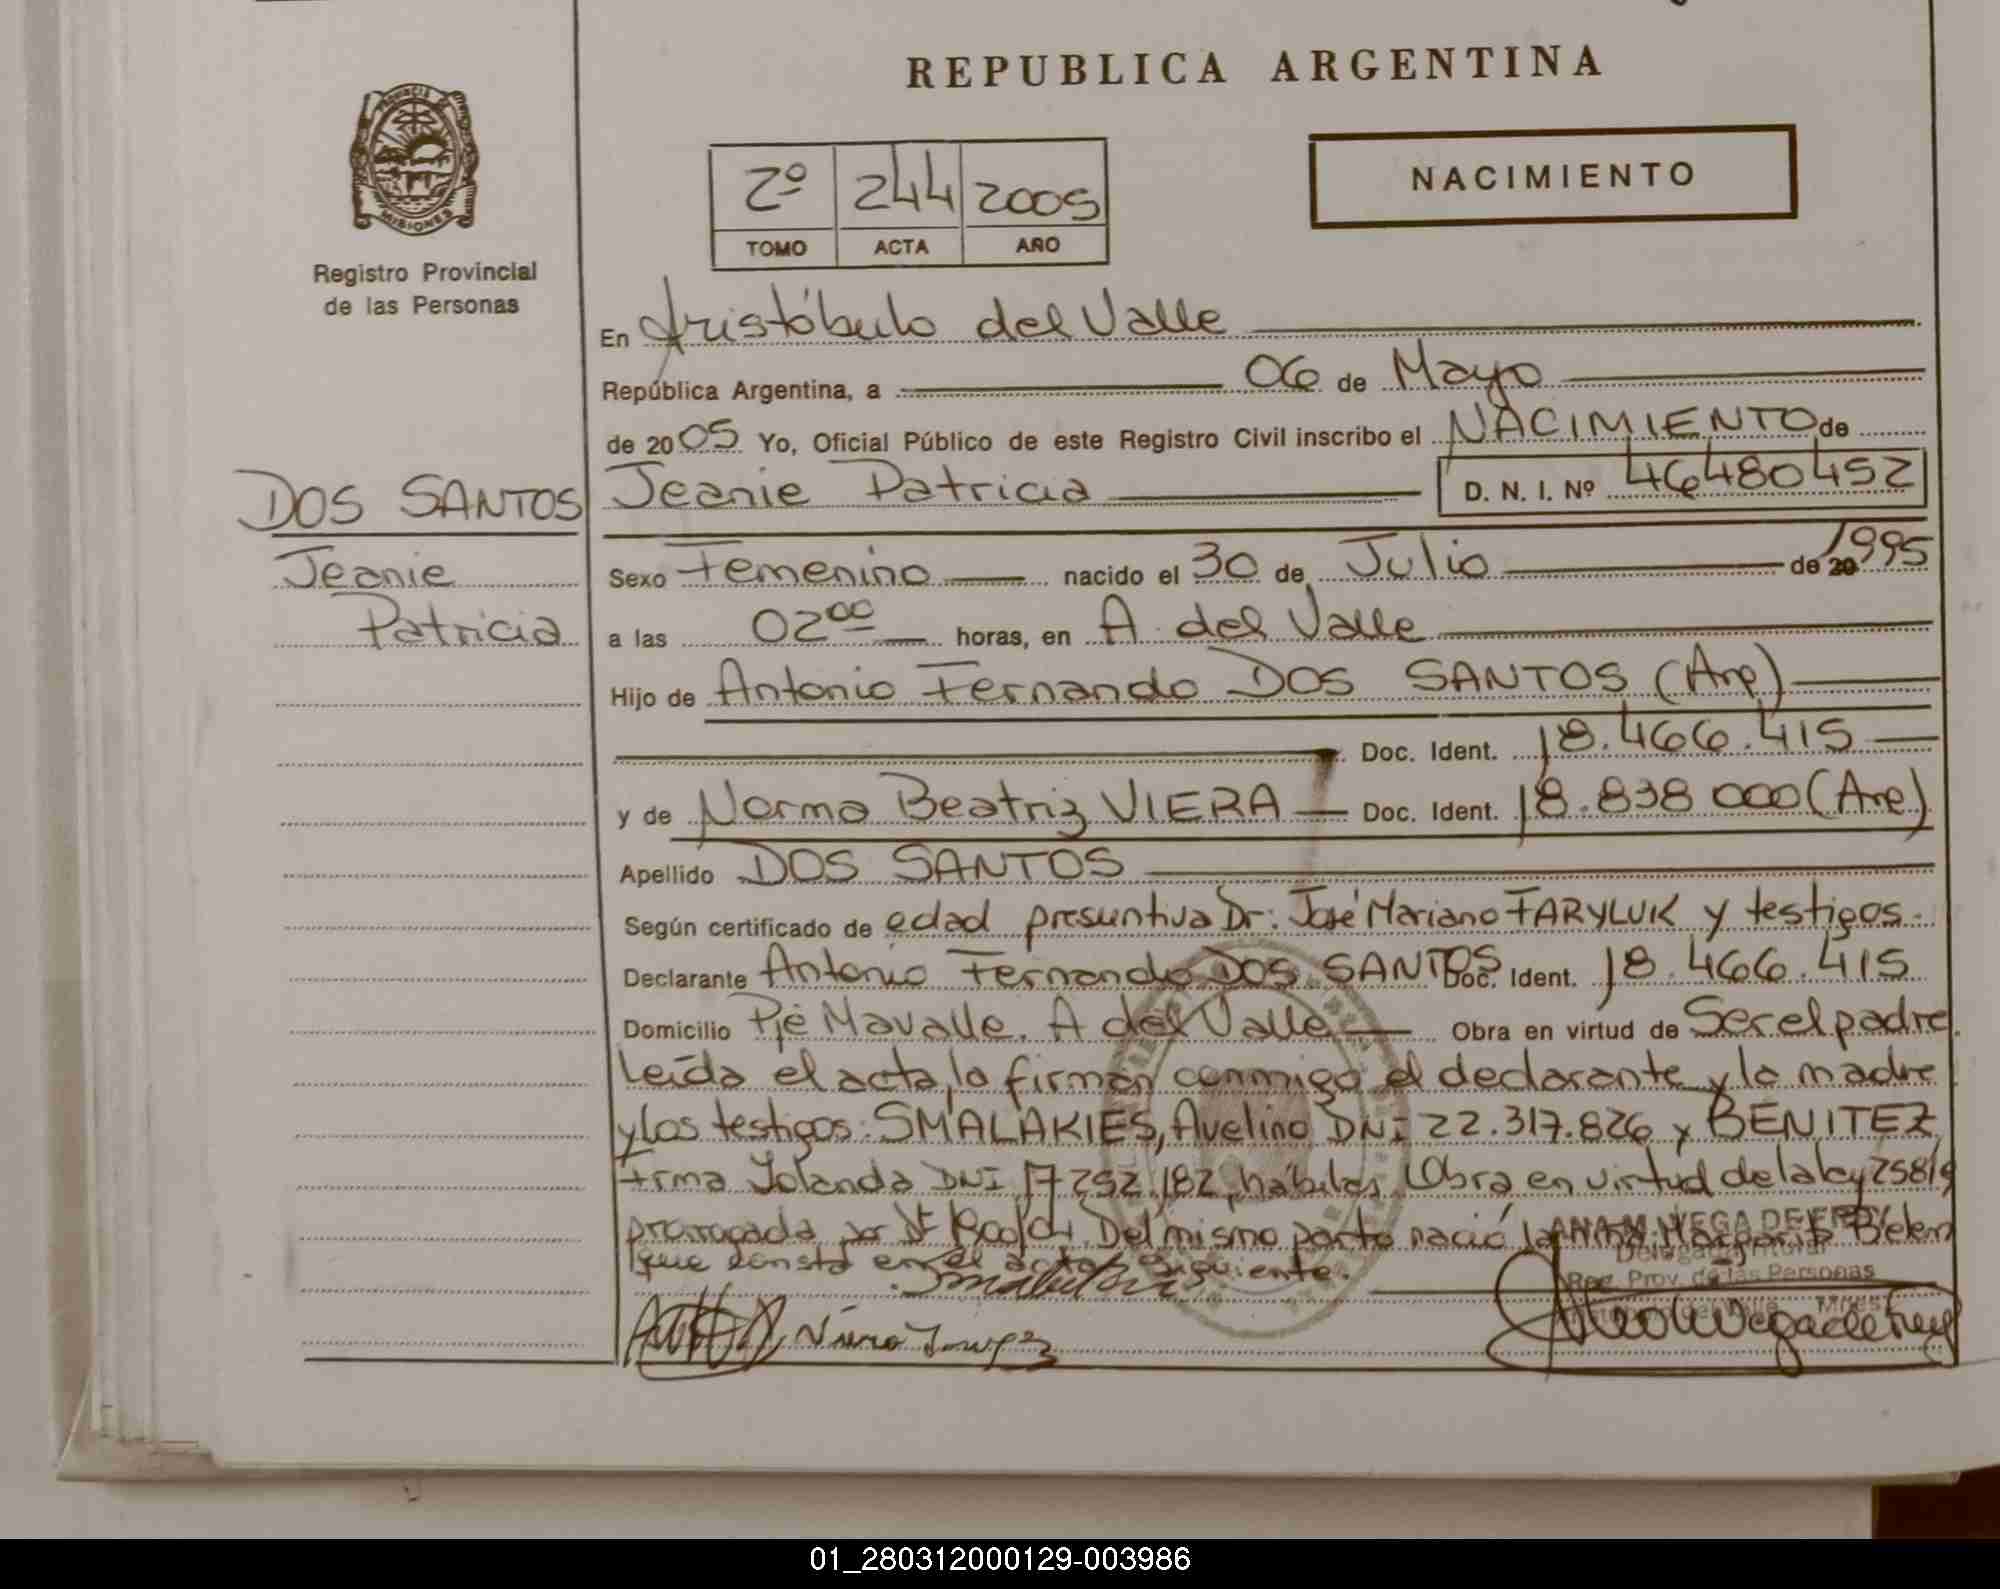 REPUBLICA ARGENTINA
PROVINCIA DE
MISIONES
Registro Provincial
de las Personas
2º 244 2005
TOMO ACTA AÑO
NACIMIENTO
En Aristóbulo del Valle
República Argentina, a 06 de Mayo
de 2005 Yo, Oficial Público de este Registro Civil inscribo el NACIMIENTO de
DOS SANTOS Jeanie Patricia D. N. I. Nº 46480452
Jeanie
Patricia
Sexo Femenino nacido el 30 de Julio de 20 1995
a las 02 00 horas, en A. del Valle
Hijo de Antonio Fernando DOS SANTOS (Arg)
Doc. Ident. 18.466.415
y de Norma Beatriz VIERA Doc. Ident. 18.838 000 (Arg)
Apellido DOS SANTOS
Según certificado de edad presuntiva Dr: José Mariano FARYLUK y testigos.
Declarante Antonio Fernando DOS SANTOS Doc. Ident. 18.466.415
Domicilio Pje Mavalle. A del Valle Obra en virtud de Ser el padre.
Leída el acta, la firman conmigo el declarante y la madre
y los testigos: SMALAKIES, Avelino DNI 22.317.826 y BENITEZ
Irma Yolanda DNI 17 252.182, hábiles. Obra en virtud de la ley 25819
prorrogada por Dt. Del mismo parto nació la niña: Margarita Belen
que consta en el acta siguiente.
ANA M. VEGA DE FREY
Delegada Titular
Reg. Prov. de las Personas
Aristóbulo del Valle Mnes.
01_280312000129-003986